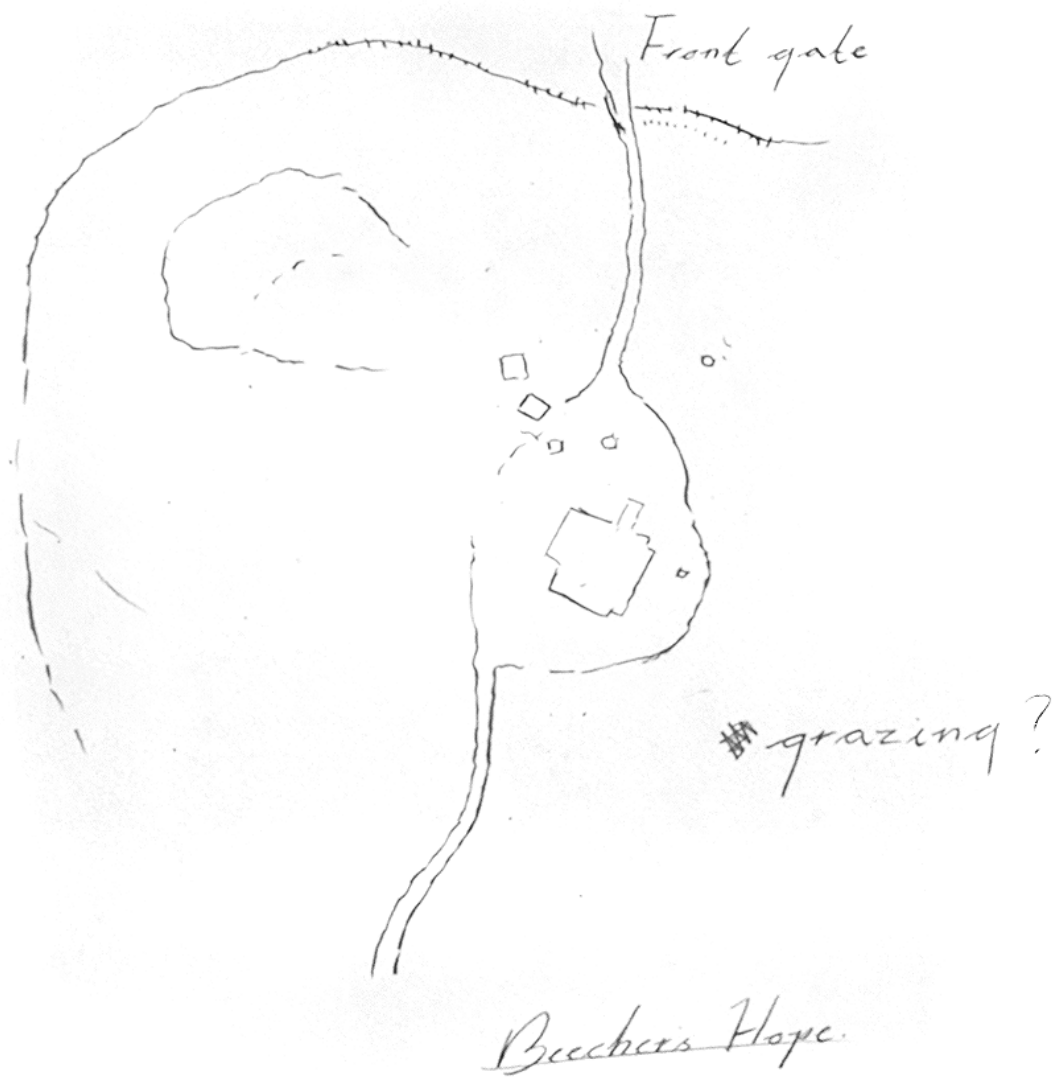 Front gate
grazing?
Beechers Hope.